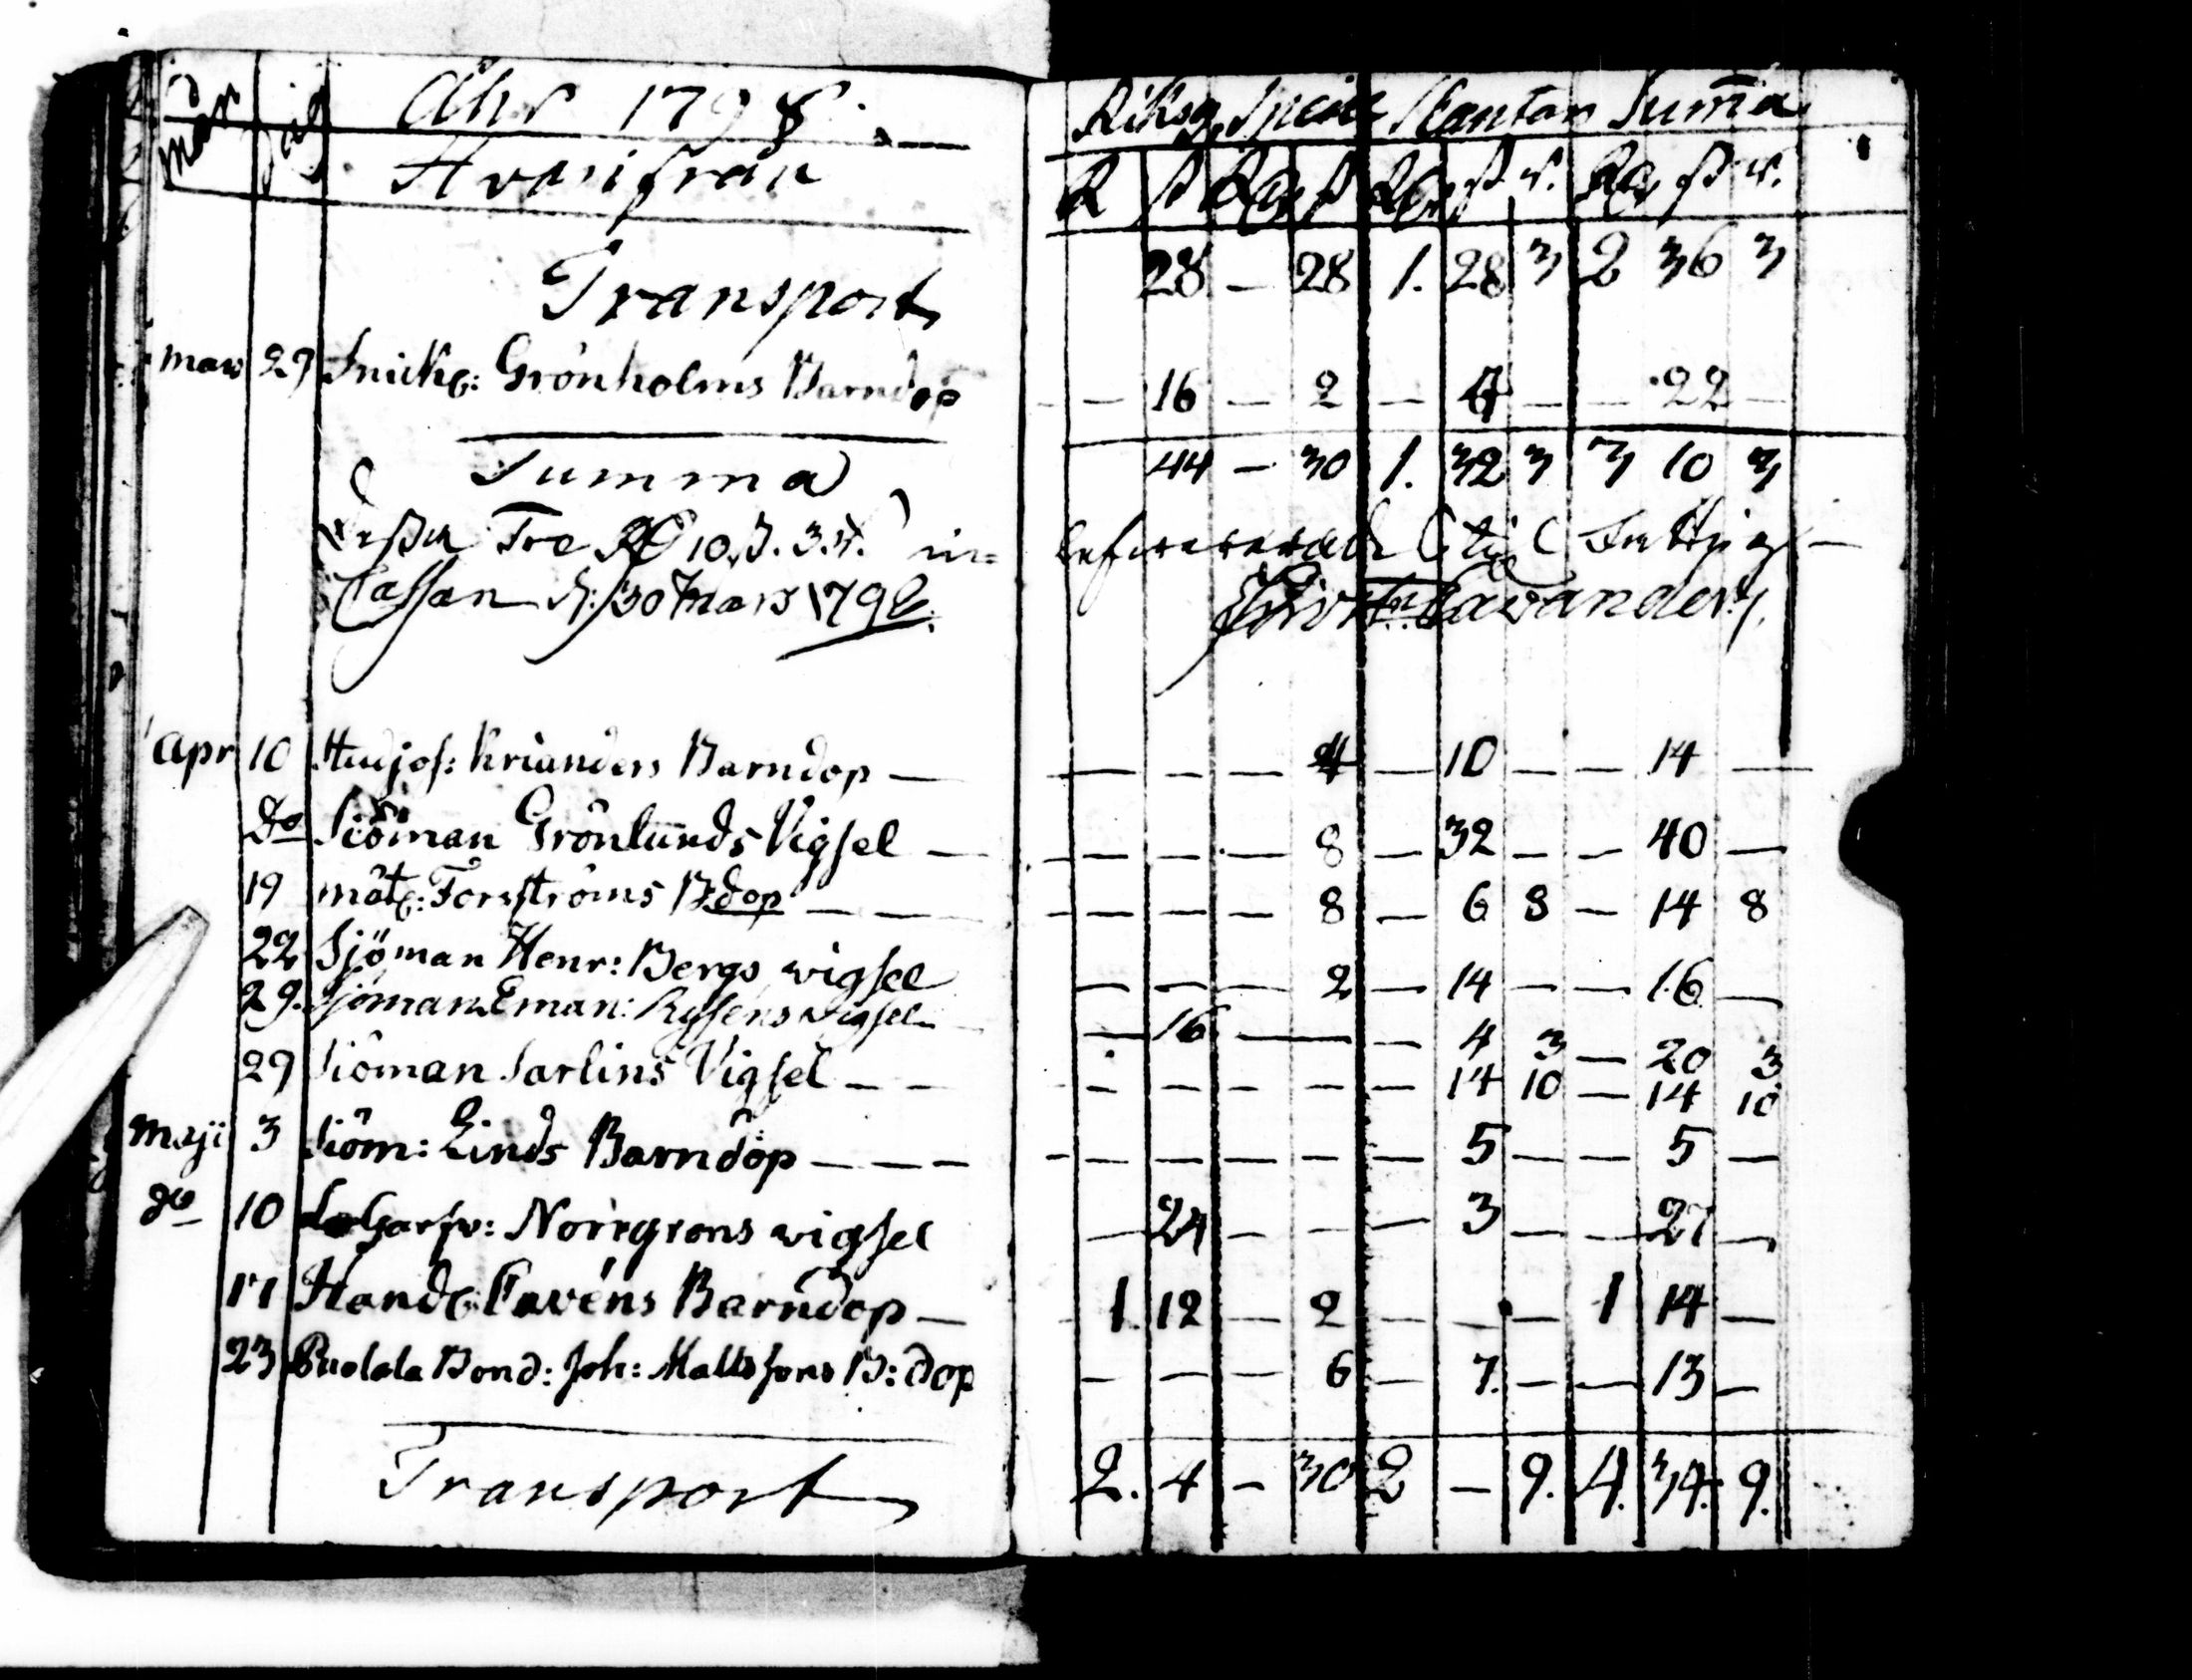 Mån dag Åhr 1798. Riksg. Specie Slantar Summa
Hvarifrån R ß Rd ß Rd ß r. Rd ß r.
Transport 28 — 28 1. 28 3 2 36 3
Mars 29 Snick: Grönholms Barndop — 16 — 2 — 4 — — 22 —
Summa 44 — 30 1. 32 3 3 10 3
Desse Tre Rd 10 ß. 3 r. in=
Cassan d: 30 Mars 1798.
Apr 10 Hudjos: Krianders Barndop — — — — 4 — 10 — — 14 —
Do Siöman Grönlunds Vigsel — — — — 8 — 32 — — 40 —
19 Måt: Forsströms B:dop — — — — — — 8 — 6 8 — 14 8
22 Sjöman Henr: Bergs wigsel — — — 2 — 14 — — 16 —
29. Sjöman Eman: wigsel — 16 — — 4 3 — 20 3
29 Siöman Sarlins Vigsel — — — — — — — 14 10 — 14 10
Maji 3 Siöm: Linds Barndop — — — — — — — — 5 — — 5 —
do 10 Norrgrens wigsel — 24 — — — 3 — — 27 —
17 Handl: Favéns Barndop — 1. 12 — 2 — — — 1 14 —
23 Puolala Bond: Joh: Mattssons B: dop — — — 6 — 7. — — 13 —
Transport 2. 4 — 30 2 — 9. 4. 34. 9.